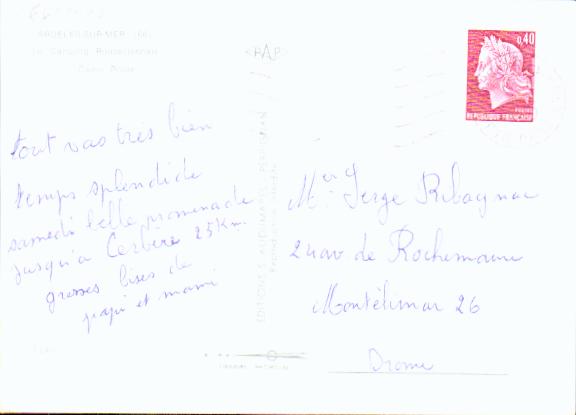 ARGELES-SUR-MER (66)
Le Camping Roussillonnais
"RAP"
0,40
POSTES
REPUBLIQUE FRANÇAISE
tout vas très bien
temps splendide
samedi belle promenade
jusqu'a Cerbère 25 Km.
grosses bises de
papi et mami
EDITIONS AUDUMARES - PERPIGNAN
Reproduction interdite
Serge Ribagnac
24 av de Rochemaure
Montélimar 26
Drome